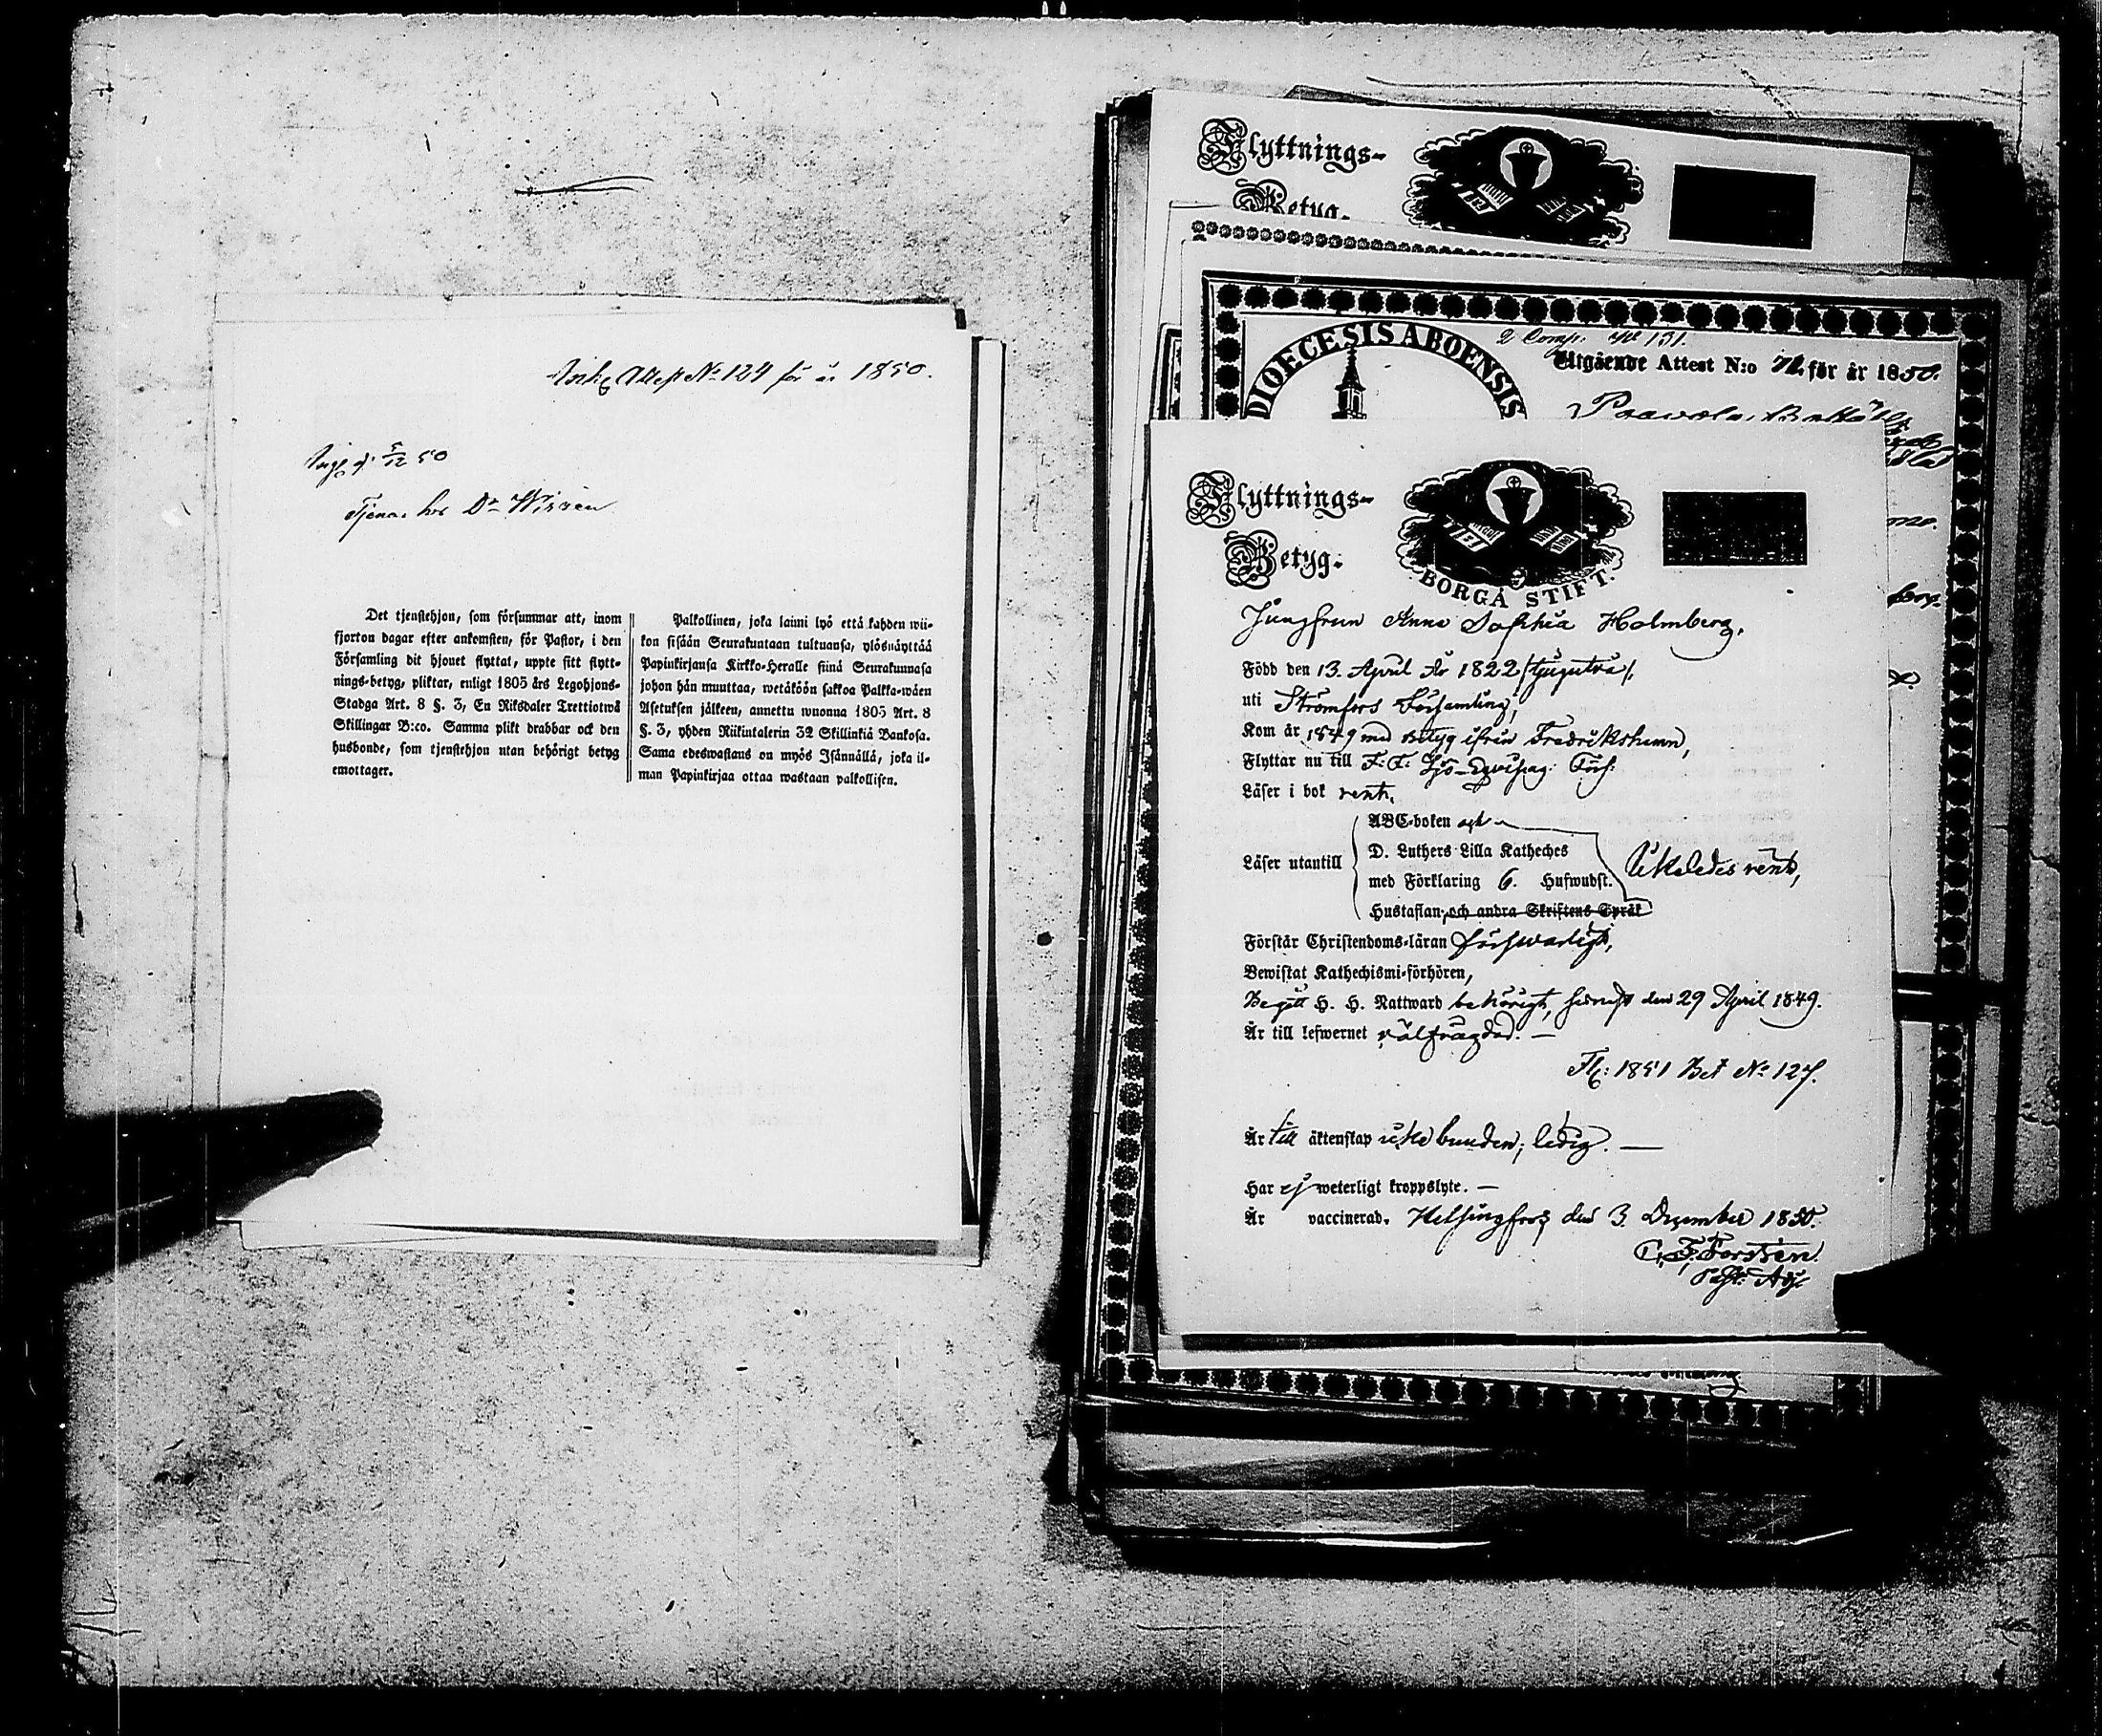 Ank. Attest No 124 för år 1850.
Ingl. d. 5/12 50
Tjenar hos Dr Wirzen
Det tjenstehjon, som försummar att, inom
fjorton dagar efter ankomsten, för Pastor, i den
Församling dit hjonet flyttat, uppte sitt flytt-
nings-betyg, pliktar, enligt 1805 års Legohjons-
Stadga Art. 8 §. 3, En Riksdaler Trettiotwå
Skillingar B:co. Samma plikt drabbar ock den
husbonde, som tjenstehjon utan behörigt betyg
emottager.
Palkollinen, joka laimi lyö että kahden wii-
kon sisään Seurakuntaan tultuansa, ylösnäyttää
Papinkirjansa Kirkko-Heralle siinä Seurakunnasa
johon hän muuttaa, wetäköön sakkoa Palkka-wäen
Asetuksen jälkeen, annettu wuonna 1805 Art. 8
§. 3, yhden Riikintalerin 32 Skillinkiä Bankosa.
Sama edeswastaus on myös Isännällä, joka il-
man Papinkirjaa ottaa wastaan palkollisen.
Flyttnings-
Betyg.
DIOECESIS ABOENSIS
2 Comp. No 131.
Utgående Attest N:o för år 1850.
Flyttnings-
Betyg.
BORGÅ STIFT.
Jungfrun Anna Sophia Holmberg,
Född den 13. April År 1822 /tjugutvå/.
uti Strömfors Församling,
Kom år 1849 med betyg ifrån Fredrikshamn,
Flyttar nu till F. F. Sjö-Equipag: Förs:
Läser i bok rent,
ABC-boken och
Läser utantill D. Luthers Lilla Katheches
med Förklaring 6. Hufwudst. likaledes rent,
Hustaflan, och andra Skriftens Språk
Förstår Christendoms-läran försvarligt,
Bewistat Kathechismi-förhören,
Begått H. H. Nattward behörigt, senast den 29 April 1849.
Är till lefwernet välfrägdad. —
Fl: 1851 Bet No 127.
Är till äktenskap icke bunden; ledig. —
Har ej weterligt kroppslyte. —
Är vaccinerad. Helsingfors den 3. December 1850.
C. F. Forssén.
Past. Adj.